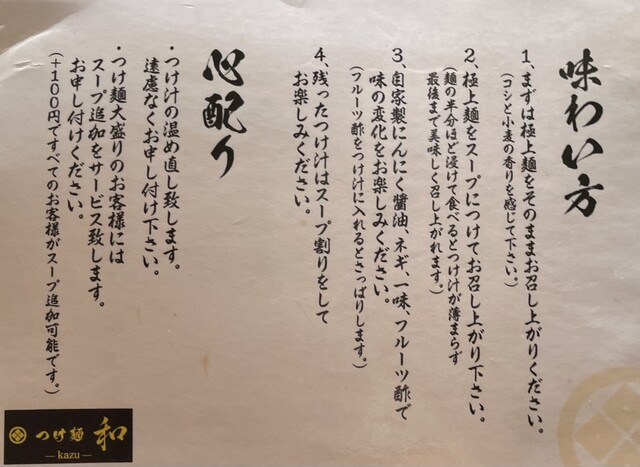 味わい方
1、まずは極上麺をそのままお召し上がりください。
(コシと小麦の香りを感じて下さい。)
2、極上麺をスープにつけてお召し上がり下さい。
(麺の半分ほど浸けて食べるとつけ汁が薄まらず
最後まで美味しく召し上がれます。)
3、自家製にんにく醬油、ネギ、一味、フルーツ酢で
味の変化をお楽しみください。
(フルーツ酢をつけ汁に入れるとさっぱりします。)
4、残ったつけ汁はスープ割りをして
お楽しみください。
心配り
・つけ汁の温め直し致します。
遠慮なくお申し付け下さい。
・つけ麺大盛りのお客様には
スープ追加をサービス致します。
お申し付けください。
(+100円ですべてのお客様がスープ追加可能です。)
つけ麺 和
—kazu—